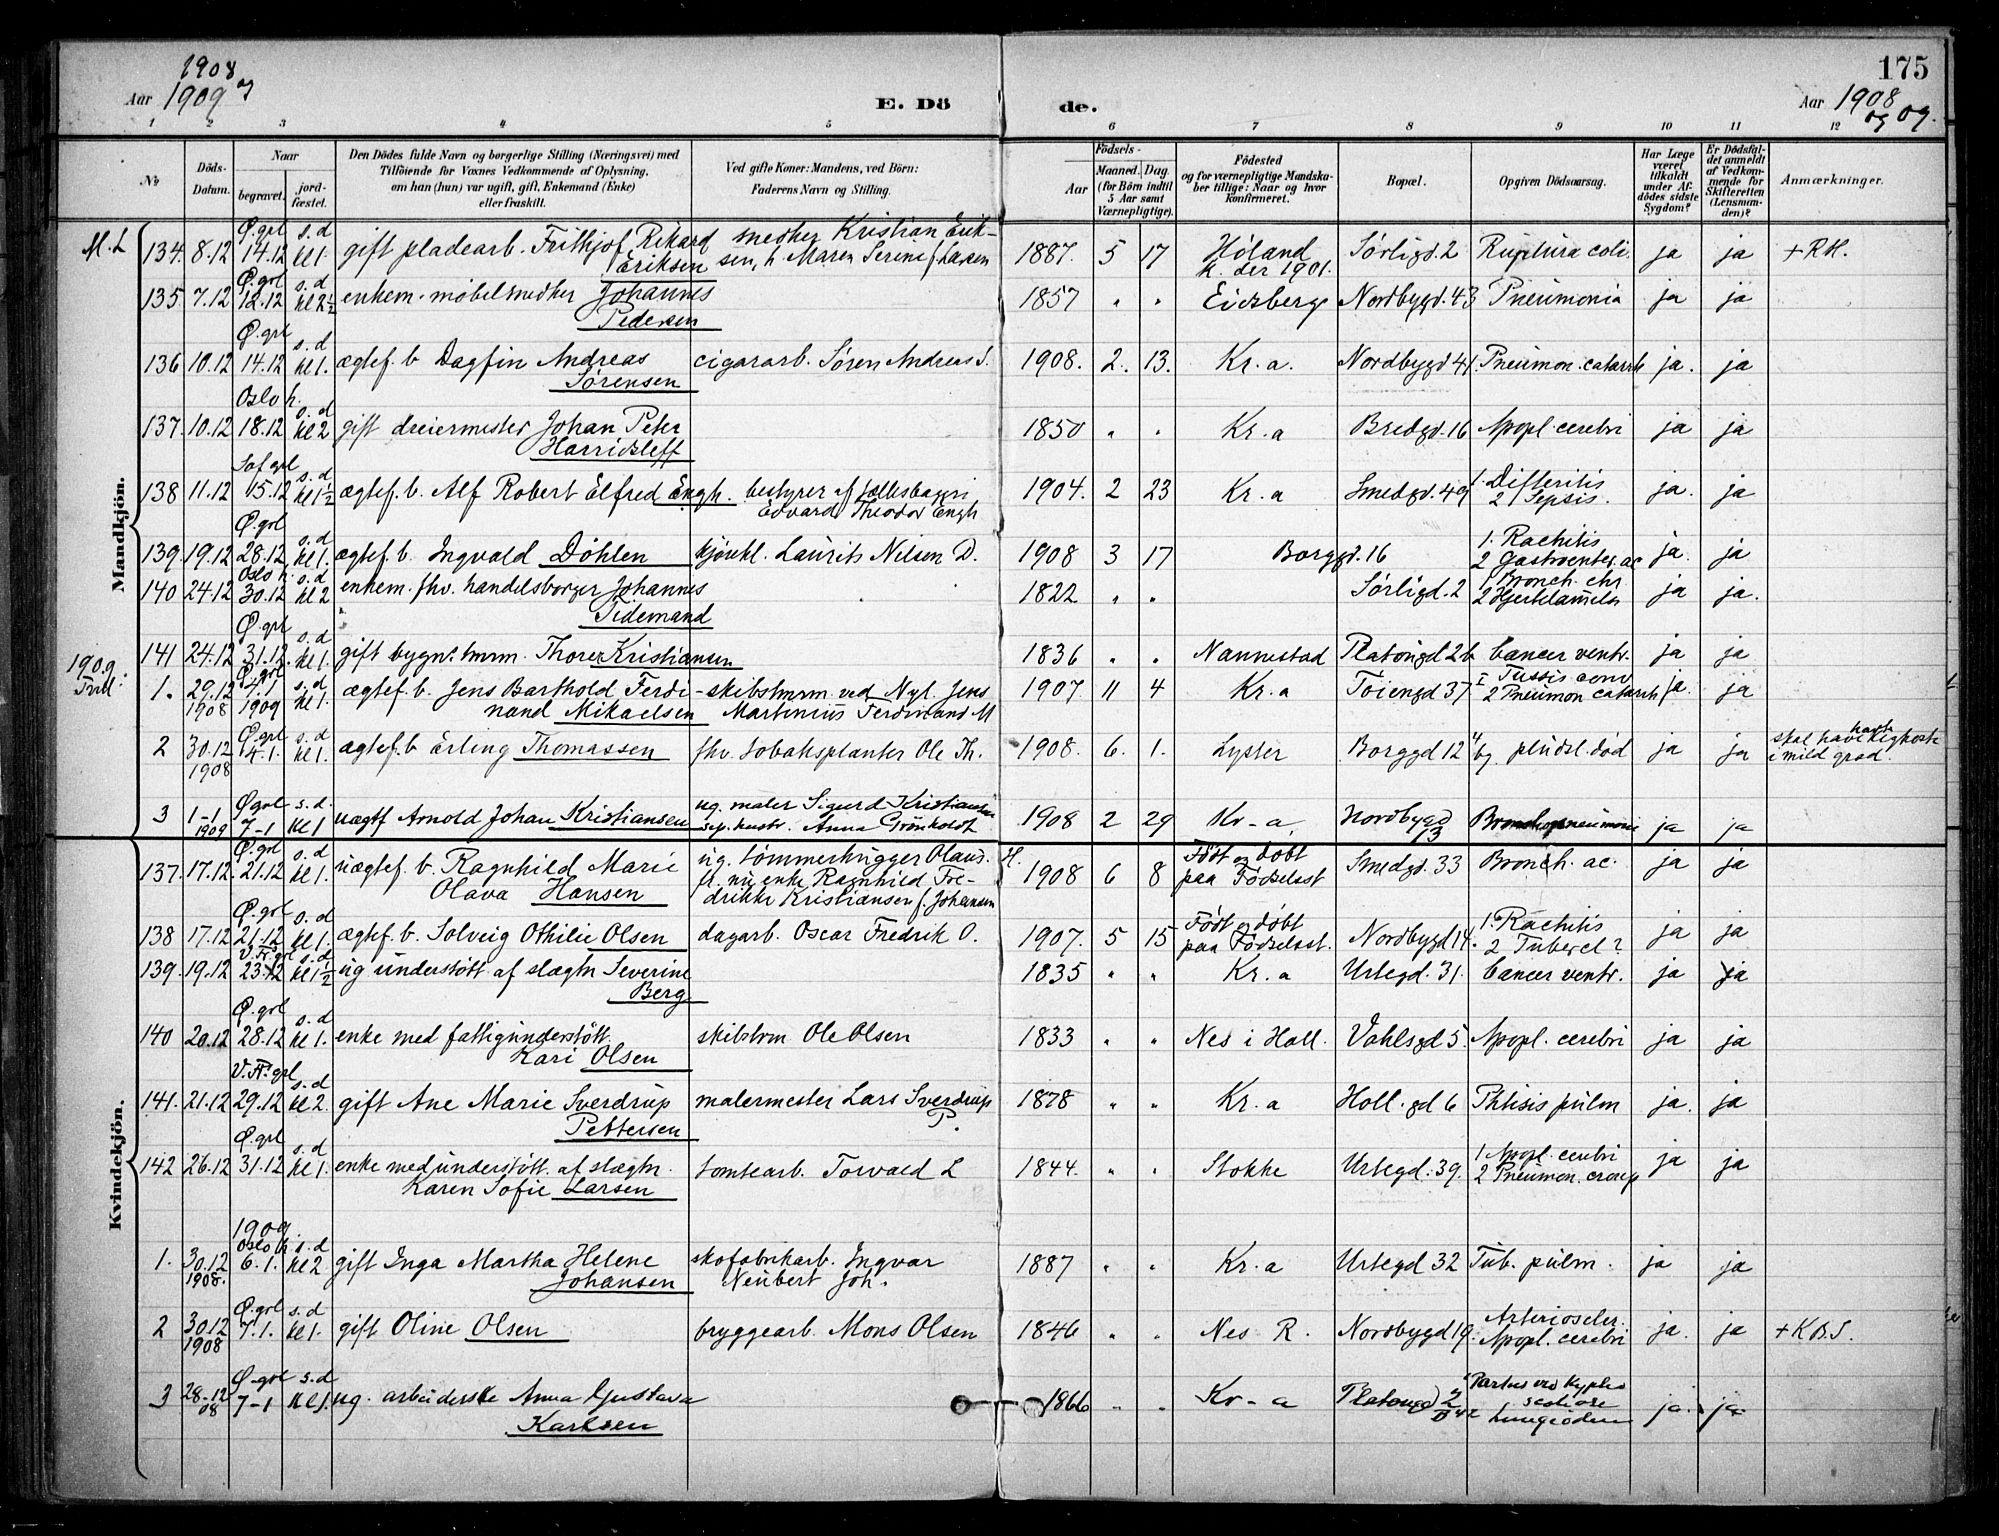 1908
Aar 1909 og
E. Dö
de.
175
Aar 1908
og 09.
1 2 3 4 5 6 7 8 9 10 11 12
No
Döds-Datum.
Naar
begravet.
jord-fæstet.
Den Dödes fulde Navn og borgerlige Stilling (Næringsvei) med
Tilföiende for Voxnes Vedkommende af Oplysning,
om han (hun) var ugift, gift, Enkemand (Enke)
eller fraskilt.
Ved gifte Koner: Mandens, ved Börn:
Faderens Navn og Stilling.
Födsels-
Aar
Maaned. Dag
(for Börn indtil
5 Aar samt
Værnepligtige).
Födested
og for værnepligtige Mandska-
ber tillige: Naar og hvor
konfirmeret.
Bopæl.
Opgiven Dödsaarsag.
Har Læge
været
tilkaldt
under Af-
dødes sidste
Sygdom?
Er Dödsfal-
det anmeldt
af Vedkom-
mende for
Skifteretten
(Lensman-
den)?
Anmærkninger.
Mandkjön.
M. L 134. 8.12 Ø.grl 14.12 s.d kl 1. gift pladearb. Frithjof Rikard Eriksen smedker Kristian Erik-
sen, h Maren Serine f Larsen 1887. 5 17 Høland k. der 1901. Sørligd. 2 Ruptura coli. ja ja + RH.
135 7.12 Ø.grl 12.12 s.d kl 2½ enkem. møbelsnedker Johannes
Pedersen 1857 " " Eidsberg Nordbygd. 43 Pneumonia ja ja
136 10.12 Ø.grl 14.12 s.d kl 1. ægtef. b Dagfin Andreas
Sørensen cigararb. Søren Andreas S. 1908. 2. 13. Kr.a. Nordbygd 41. Pneumon. catarrh ja. ja
137. 10.12 Oslo h. 18.12 s.d kl 2 gift dreiermester Johan Peter
Harridsleff 1850 " " Kr.a Bredgd. 16 Apopl. cerebri ja ja
138 11.12 Sof.grl 15.12 s.d kl 1½ ægtef. b. Alf Robert Elfred Engh. bestyrer af
Edvard Theodor Engh 1904. 2 23 Kr.a Smedgd. 49 1. Difteritis
2 Sepsis. ja. ja
139. 19.12 Ø.grl 28.12 s.d kl 1. ægtef. b. Ingvald Döhlen kjørekl. Laurits Nilsen D. 1908 3 17 Borggd. 16 1. Rachitis
2 Gastroenter. ac ja. ja
140 24.12 Oslo h. 30.12 s.d kl 2 enkem. fhv. handelsborger Johannes
Tidemand 1822 " " Sørligd. 2 1 Bronch. chr.
2 Hjertelammelse ja ja.
141 24.12 Ø.grl 31.12. s.d kl 1. gift bygn. tmrm. Thorer Kristiansen 1836 " " Nannestad Platougd 2b Cancer ventr. ja ja
1909.
Trid:
1. 29.12 1908 Ø.grl 7.1 1909 s.d kl 1. ægtef. b. Jens Barthold Ferdi-
nand Mikaelsen skibstmrm ved Nyl. Jens
Martinius Ferdinand M 1907. 11 4 Kr.a Töiengd 37 1 Tussis conv
2 Pneumon catarrh ja. ja
2 30.12 1908 Ø.grl 14.1. s.d kl 1. ægtef. b Erling Thomassen fhv. tobaksplanter Ole Th. 1908. 6. 1. Lyster Borggd 12 bg. pludsl. død ja ja skal have havt kighoste
i mild grad.
3 1-1 1909 Ø.grl 7-1 s.d. kl 1 uægtf Arnold Johan Kristiansen ug. maler Sigurd Kristiansen
sep. hustr. Anna Grönholdt 1908 2 29 Kr-a. Nordbygd
13 Bronchopneumoni ja ja
Kvindekjön.
137. 17.12. Ø.grl 21.12 s.d kl 1. uægtef. b. Ragnhild Marie
Olava Hansen ug. tømmerhugger Olaus. H.
fl. nu enke Ragnhild Fre-
drikke Kristiansen f. Johansen 1908 6 8 Født og døbt
paa Fødselsst Smedgd. 33 Bronch. ac. ja ja
138 17.12 Ø.grl 21.12 s.d kl 1. ægtef. b. Solveig Othilie Olsen dagarb. Oscar Fredrik O. 1907. 5 15 Født og døbt
paa Fødselsst. Nordbygd 14. 1. Rachitis
2 Tubercl? ja ja
139. 19.12 V.A.grl 23.12 s.d kl 1½ ug understøtt af slægtn Severine
Berg 1835 " " Kr.a Urtegd. 31. Cancer ventr. ja ja
140 20.12 Ø.grl 28.12 s.d kl 1. enke med fattigunderstøtt.
Kari Olsen skibstrm Ole Olsen 1833 " " Nes i Hall. Vahlsgd 5. Apopl. cerebri ja ja
141. 21.12 V.A.grl 29.12 s.d kl 2. gift Ane Marie Sverdrup
Pettersen malermester Lars Sverdrup
P. 1878 " " Kr.a Holl.gd 6 Phtisis pulm ja. ja
142 26.12 Ø.grl 31.12 s.d kl 1. enke med understøtt. af slægtn.
Karen Sofie Larsen tomtearb. Torvald L 1844. " " Stokke Urtegd. 39. 1 Apopl. cerebri
2 Pneumon. croup ja ja
1. 30.12 1908. 1909. Oslo h. 6.1. s.d kl 2 gift Inga Martha Helene
Johansen skofabrikarb. Ingvar
Neubert Joh. 1887 " " Kr.a Urtegd 32 Tub. pulm. ja ja
2 30.12 1908 Ø.grl 7.1. s.d. kl 1. gift Oline Olsen bryggearb. Mons Olsen 1846 " " Nes R. Nordbygd 19. Arterioscler.
Apopl. cerebri ja. ja + K.B.S.
3 28-12 08 Ø.grl 7-1 s.d kl 1. ug. arbeiderske Anna Gustava
Karlsen 1866 " " Kr-a Platougd Partus ved kypho
scoliose
Lungeödem ja. ja